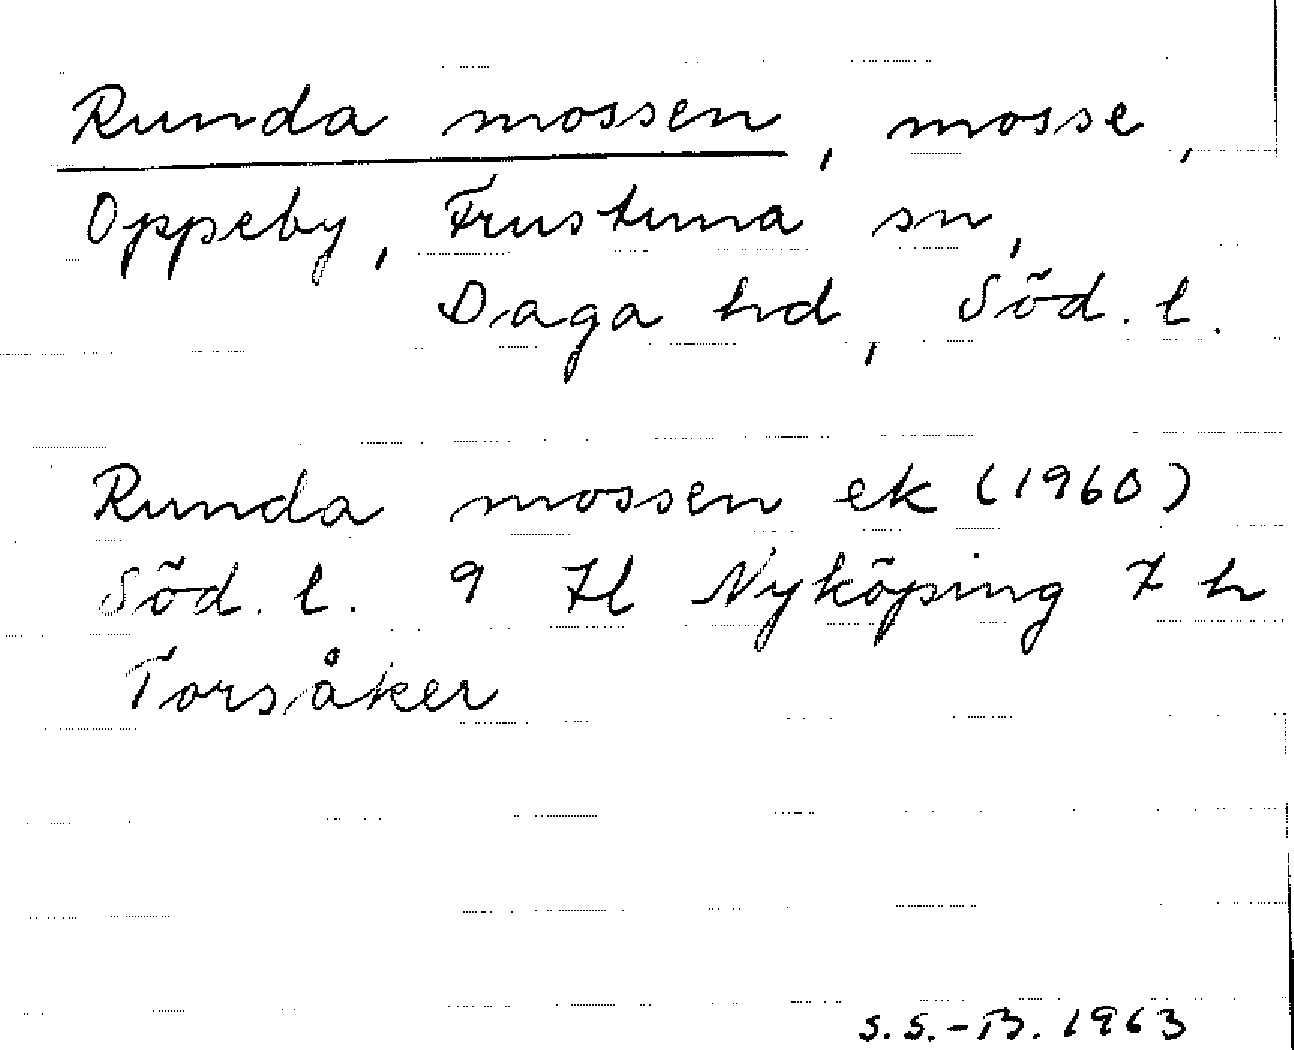 Runda mossen, mosse,
Oppeby, Frustuna sn,
Daga hd, Söd. l.
Runda mossen ek (1960)
Söd. l. 9 H Nyköping 7 h
Torsåker
S.S.-B. 1963